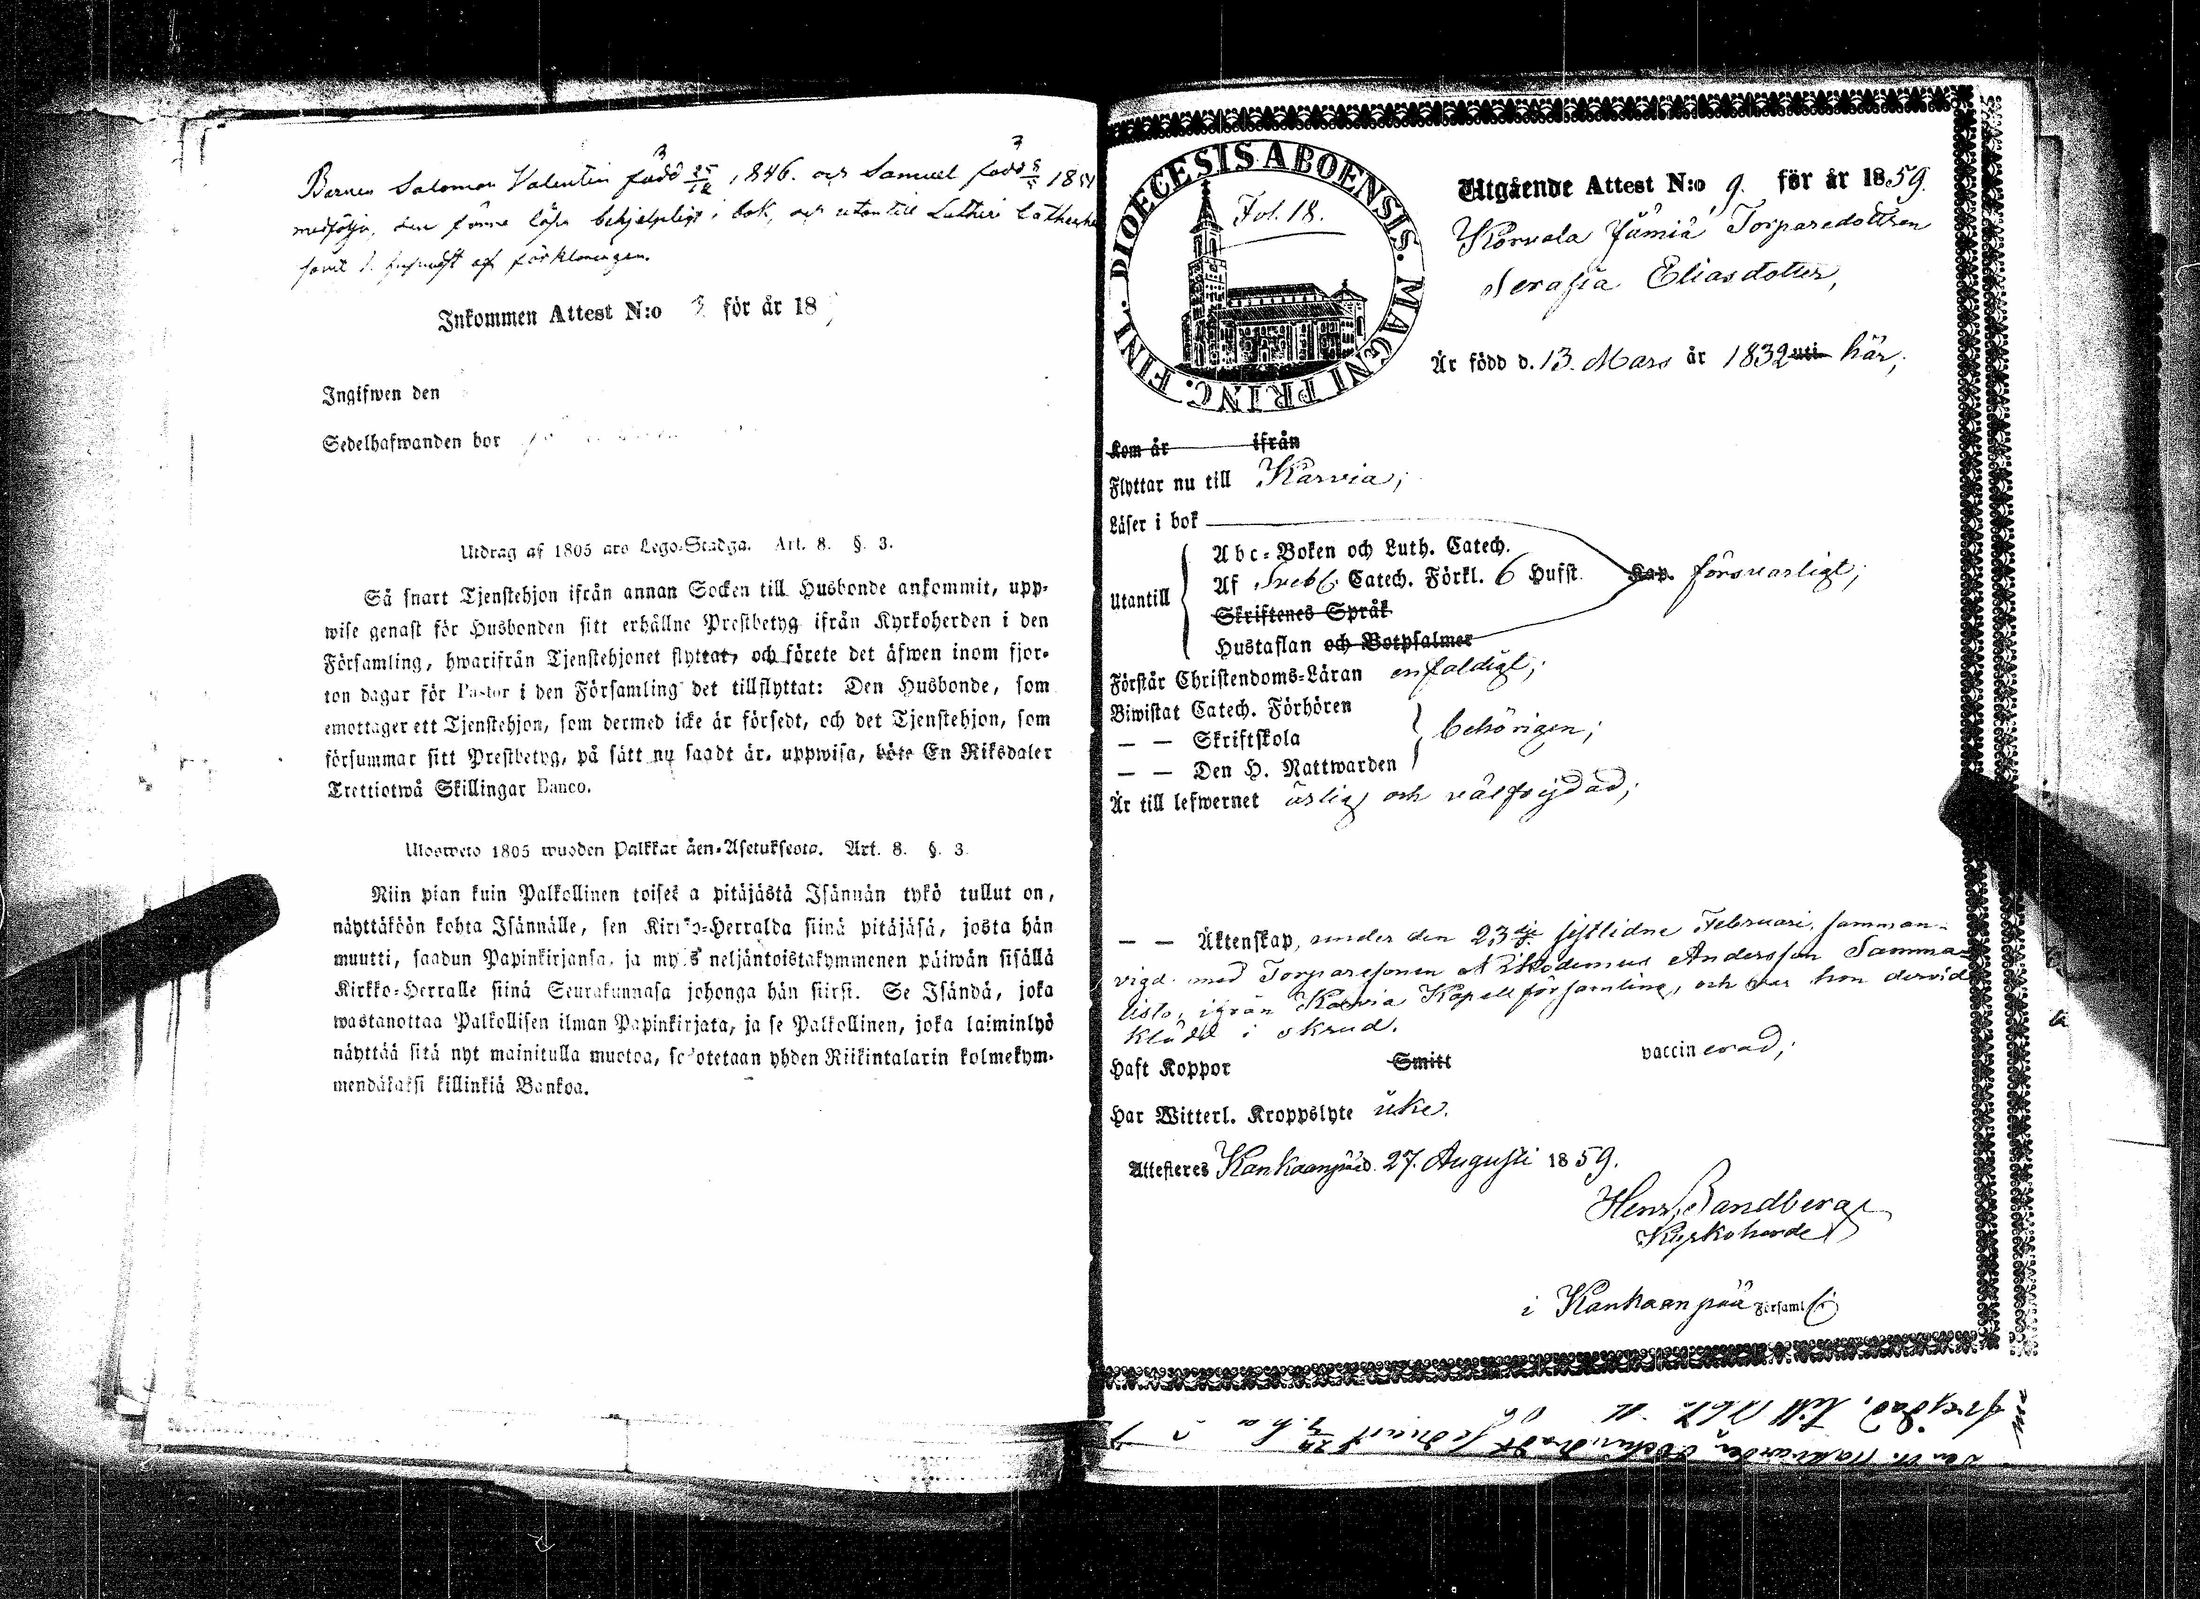 Barnen Salomon Valentin född 25/12 1846. och Samuel född
medfölja, den förre läser behjelpligt i bok, och utantill Lutheri
af förklaringen.
Inkommen Attest N:o 3 för år 18
Ingifwen den
Sedelhafwanden bor
Utdrag af 1805 års Lego-Stadga. Art. 8. §. 3.
Så snart Tjenstehjon ifrån annan Socken till Husbonde ankommit, upp-
wise genast för Husbonden sitt erhållne Prestbetyg ifrån Kyrkoherden i den
Församling, hwarifrån Tjenstehjonet flyttat, och förete det äfwen inom fjor-
ton dagar för Pastor i den Församling det tillflyttat: Den Husbonde, som
emottager ett Tjenstehjon, som dermed icke är försedt, och det Tjenstehjon, som
försummar sitt Prestbetyg, på sätt nu sagdt är, uppwisa, böte En Riksdaler
Trettiotwå Skillingar Banco.
Ulosweto 1805 wuoden Palkkaräen-Asetuksesta. Art. 8. §. 3.
Niin pian kuin Palkollinen toisesta pitäjästä Isännän tykö tullut on,
näyttäköön kohta Isännälle, sen Kirkko-Herralda siinä pitäjäsä, josta hän
muutti, saadun Papinkirjansa, ja myös neljäntoistakymmenen päiwän sisällä
Kirkko-Herralle siinä Seurakunnasa johonga hän siirsi. Se Isändä, joka
wastanottaa Palkollisen ilman Papinkirjata, ja se Palkollinen, joka laiminlyö
näyttää sitä nyt mainitulla muotoa, sakotetaan yhden Riikintalarin kolmekym-
mendäkaksi killinkiä Bankoa.
DIOECESIS ABOENSIS. MAGNI PRINC. FINL.
Fol. 18.
Utgående Attest N:o 9. för år 1859.
Korvala Jämiä Torparedottren
Serafia Eliasdotter,
Är född d. 13. Mars år 1832 uti här;
Kom år ifrån
Flyttar nu till Karvia;
Läser i bok
Utantill
Abc-Boken och Luth. Catech.
Af Sveb. Catech. Förkl. 6 Hufst. Kap. försvarligt;
Skriftenes Språk
Hustaflan och Botpsalmer
Förstår Christendoms-Läran enfaldigt;
Biwistat Catech. Förhören
— — Skriftskola behörigen;
— — Den H. Nattwarden
Är till lefwernet ärlig och välfrejdad;
— — Äktenskap, under den 23dje sistlidne Februari, samman-
vigd med Torparesonen Nikodemus Andersson Samma-
listo, ifrån Karvia Kapellförsamling, och var hon dervid
klädd i skrud.
Haft Koppor Smitt vaccinerad;
Har Witterl. Kroppslyte icke.
Attesteras Kankaanpää d. 27. Augusti 1859.
Henr. Sandberg
Kyrkoherde
i Kankaanpää Församl.